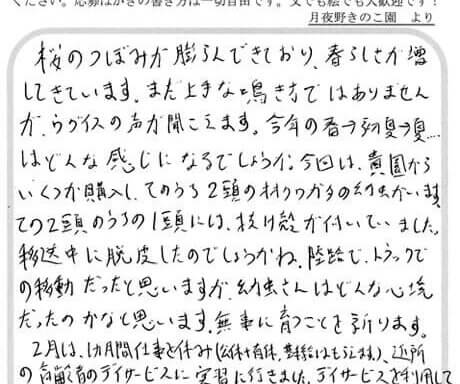 ください。応募はがきの書き方は一切自由です。文でも絵でも大歓迎です！
月夜野きのこ園　より
桜のつぼみが膨らんできており、春らしさが増
してきています。まだ上手な鳴き方ではありません
が、ウグイスの声が聞こえます。今年の春→初夏→夏…
はどんな感じになるでしょうか。今回は、貴園から
いくつか購入し、そのうち2頭のオオクワガタの幼虫がいます。
その2頭のうちの1頭には、抜け殻が付いていました。
移送中に脱皮したのでしょうかね。陸路で、トラックで
の移動だったと思いますが、幼虫さんはどんな心境
だったのかなと思います。無事に育つことを祈ります。
2月は、1カ月間仕事を休み(公休+有休、基本給はもらえます)、近所
の高齢者のデイサービスに実習に行きました。デイサービスを利用して